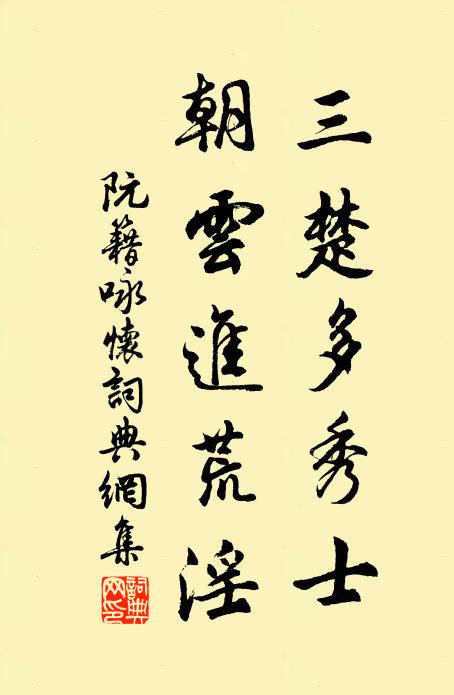 三楚多秀士
朝雲進荒淫
阮籍咏懷詞典網集
詞典網印